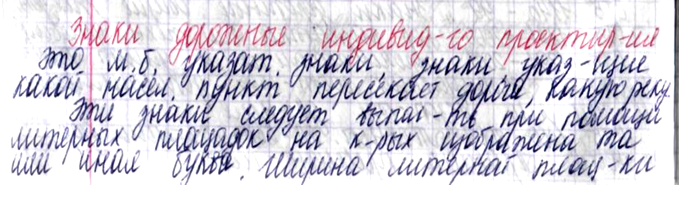 Знаки дорожные индивид-го проектир-ия
Это м.б. указат. знаки, знаки указ-щие
какой насел. пункт пересекает дорога, какую реку.
Эти знаки следует выпол-ть при помощи
литерных площадок на к-рых изображена та
или иная буква. Ширина литерной площ-ки